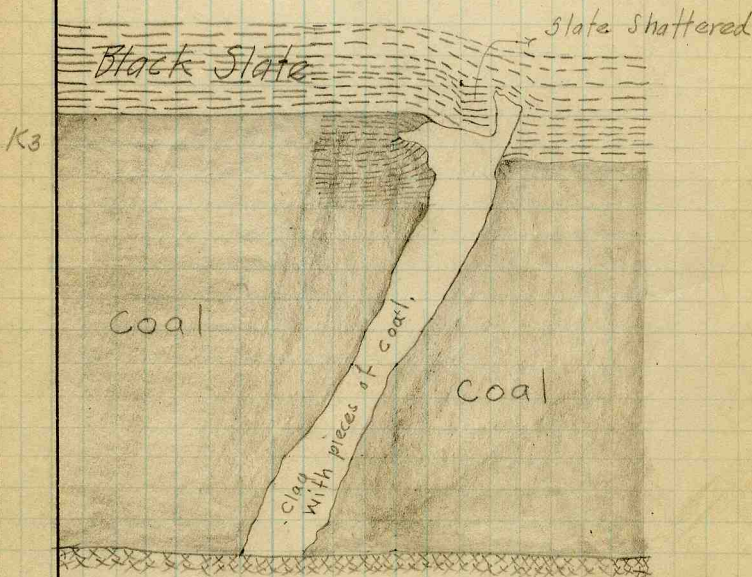 Slate Shattered
Black Slate
K3
Coal
Coal
Clay
with pieces of coal.